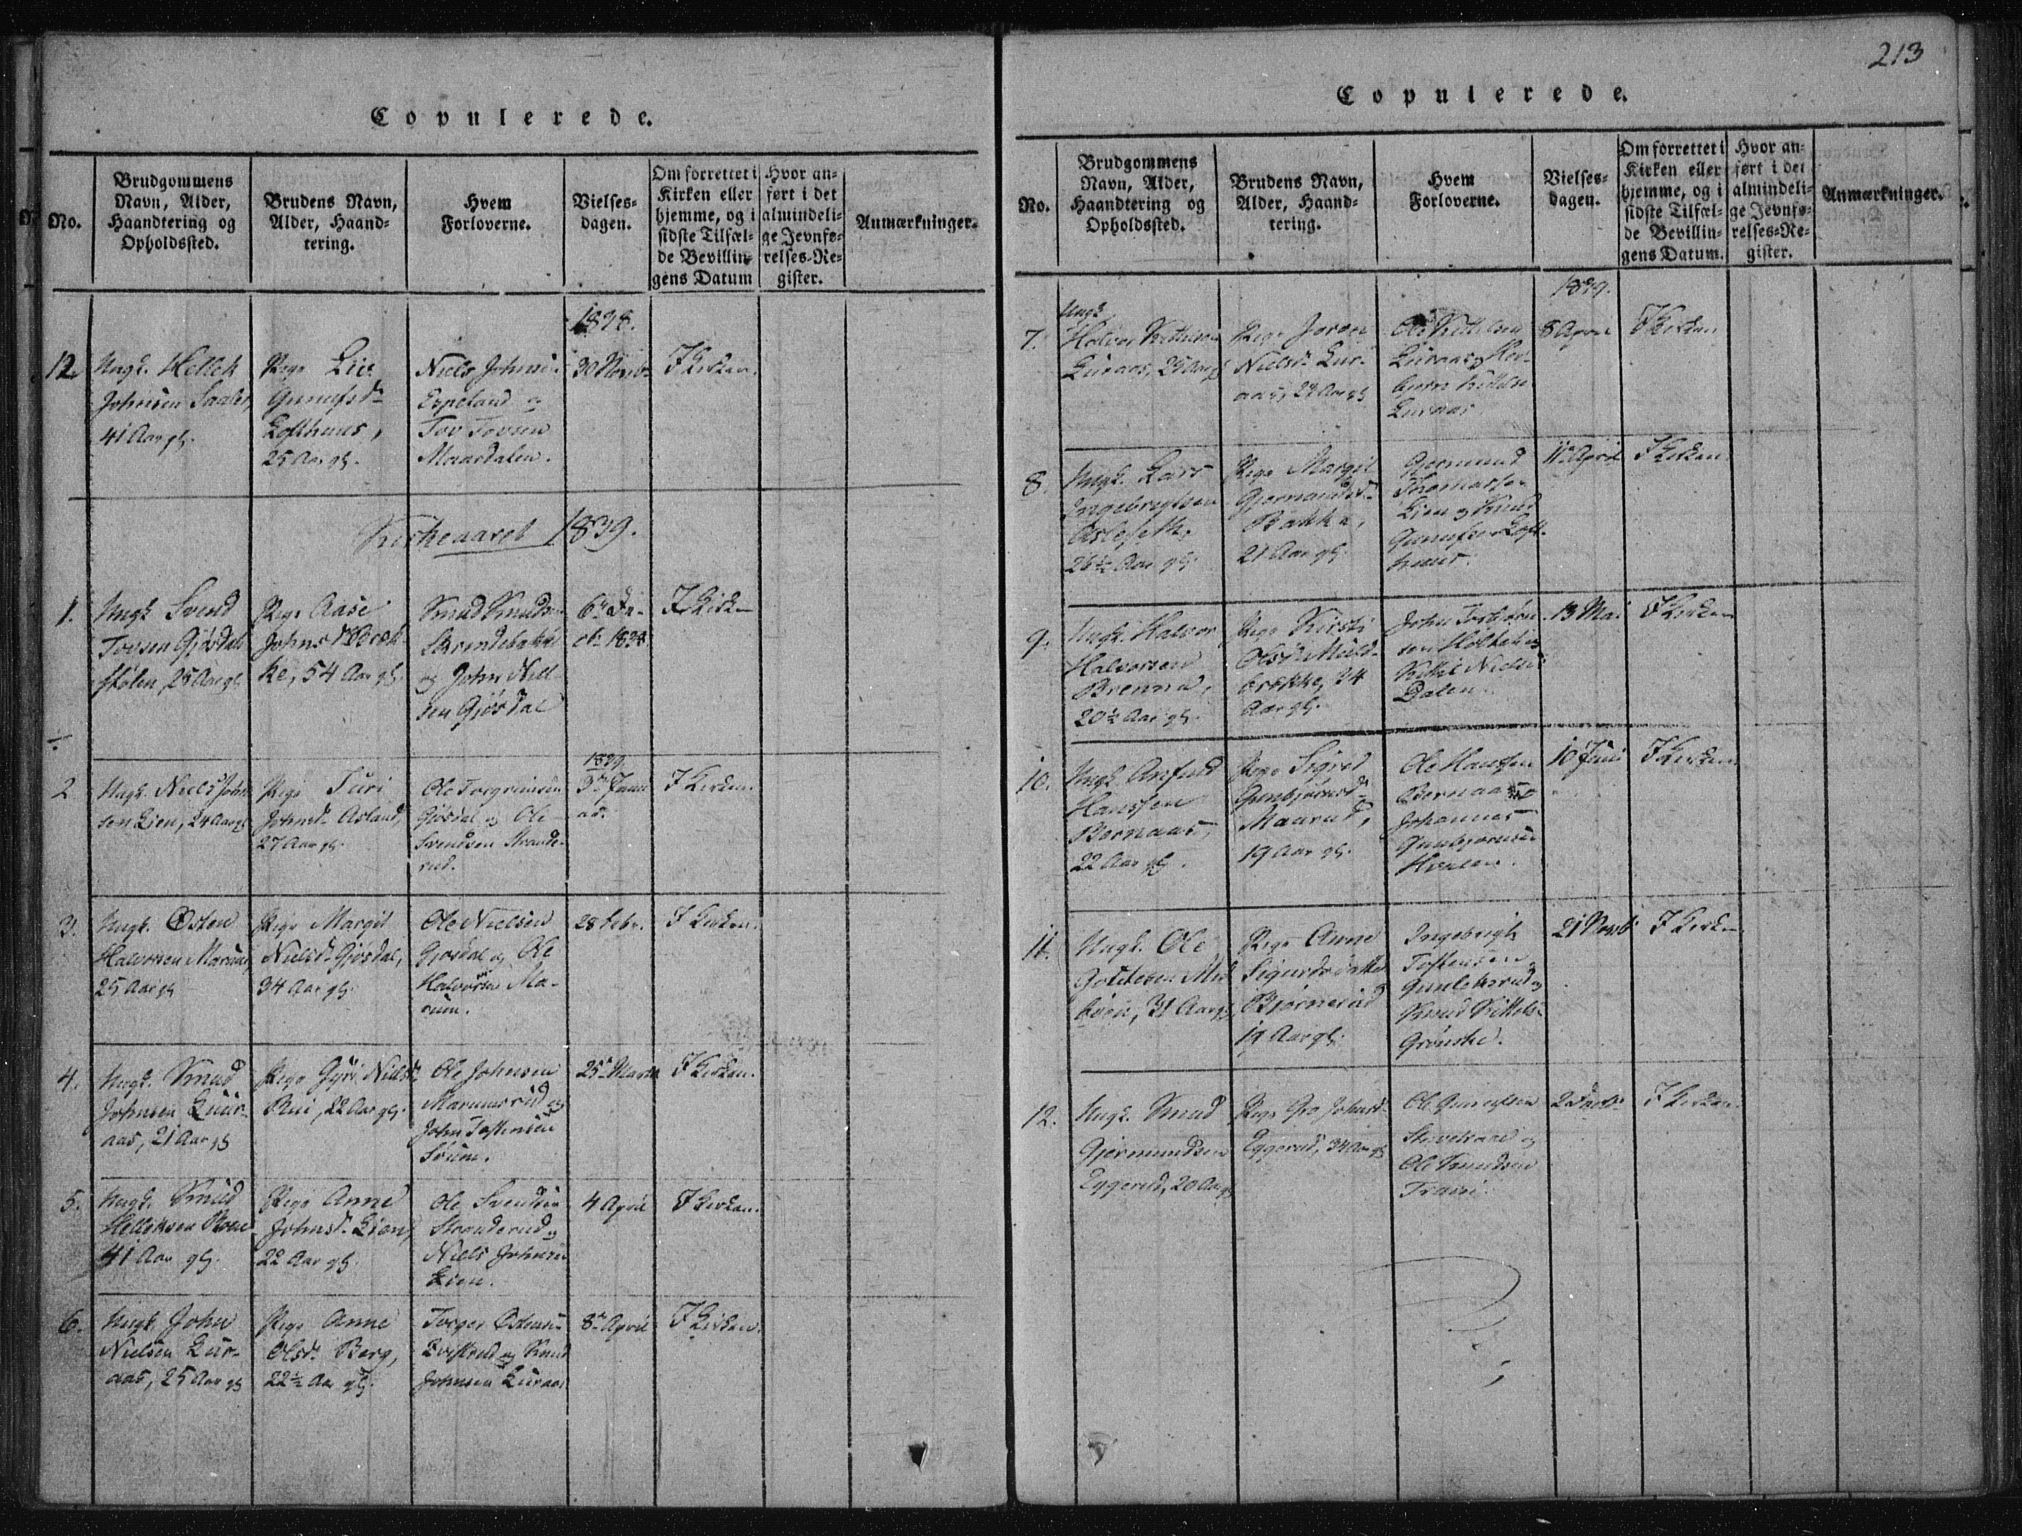 Copulerede.
No.
Brudgommens
Navn, Alder,
Haandtering og
Opholdssted.
Brudens Navn,
Alder, Haand-
tering.
Hvem
Forloverne.
Vielses-
dagen.
Om forrettet i
Kirken eller
hjemme, og i
sidste Tilfæl-
de Bevillin-
gens Datum
Hvor an-
ført i det
almindeli-
ge Jevnfø-
relses-Re-
gister.
Anmærkninger.
1838.
12
Ungk. Hellek
Johnsen
41 Aar gl.
Pige Liv
Gunulfsd.
Lofthuus,
25 Aar gl.
Niels Johnsen
Espeland og
Tov Tovsen
Maardalen.
30 Novb.
I Kirken.
Kirkeaaret 1839.
1.
Ungk. Svend
Tovsen Gjøsdal
stølen, 28 Aar gl.
Pige Aase
Johnsd.
54 Aar gl.
Knud Knudsen
og John Niel-
sen Gjøsdal
6te De
cb. 1838
I Kirken
2
Ungk. Niels John
sen Lien, 24 Aar gl
Pige Turi
Johnsd. Asland,
27 Aar gl.
Ole Torgrimsen
Gjøsdal og Ole
Svendsen Strande-
rud.
1839
3die Janu
ar.
I Kirken.
3.
Ungk. Østen
Halvorsen
25 Aar gl
Pige Margit
Nielsd. Gjøsdal,
34 Aar gl.
Ole Nielsen
Gjøsdal og Ole
Halvorsen Ma-
28 Febr.
I Kirken.
4.
Ungk. Knud
Johnsen Luur-
aas, 21 Aar gl
Pige Gyri Nielsd.
Rue, 22 Aar gl.
Ole Johnsen
og
John Tostensen
25de Marts
I Kirken.
5.
Ungk. Knud
Helleksen
41 Aar gl.
Pige Anne
Johnsd. Lien,
22 Aar gl.
Ole Svendsen
Stranderud og
Niels Johnsen
Lien.
4 April
I Kirken.
6.
Ungk. John
Nielsen Lur-
aas, 25 Aar gl
Pige Anne
Olsd. Berg,
22½ Aar gl.
Torger Østensen
og Knud
Johnsen Luraas
8de April
I Kirken.
213
Copulerede.
No.
Brudgommens
Navn, Alder,
Haandtering og
Opholdssted.
Brudens Navn,
Alder, Haand-
tering.
Hvem
Forloverne.
Vielses-
dagen.
Om forrettet i
Kirken eller
hjemme, og i
sidste Tilfæl-
de Bevillin-
gens Datum.
Hvor an-
ført i det
almindeli-
ge Jevnfø-
relses-Re-
gister.
Anmærkninger.
1839.
7.
Ungk.
Halvor Kittelsen
Luraas, 29 Aar gl
Pige Joran
Nielsd. Lur-
aas, 29 Aar gl
Ole Kittelsen
Luraas og Her-
bjørn Kittelse
Luraas
8 April
I Kirken
8.
Ungk. Lars
Ingebrigtsen
26½ Aar gl.
Pige Margit
Gjermundsd.
Bakke,
21 Aar gl.
Gjermund
Thomassen
Lien og Knud
Gunulfsen Loft-
huus.
11te April
I Kirken.
9.
Ungk. Halvor
Halvorsen
Brenna,
20½ Aar gl.
Pige Kirsti
Olsd.
24
Aar gl.
John
sen
Kittil Niels
Dalen.
13 Mai
I Kirken
10.
Ungk. Anfind
Hanssen
Bernaas,
22 Aar gl.
Pige Sigrid
Gunbjørnsd.
Maurud,
19 Aar gl.
Ole Hanssen
Bernaas og
Johannes
Gunbjørnsen
10 Juni
I Kirken
11.
Ungk. Ole
31 Aar gl
Pige Anne
Sigurdsdatter
Bjørnerud
19 Aar gl.
Ingebrigt
Tostensen
Gunleksrud og
Knud Kittels.
Grønske.
21 Novb.
I Kirken
12.
Ungk. Knud
Gjermundsen
Eggerud, 20 Aar gl
Pige Gro Johnsd.
Eggerud, 34 Aar gl
Ole
og
Ole Knudsen
I Kirken.